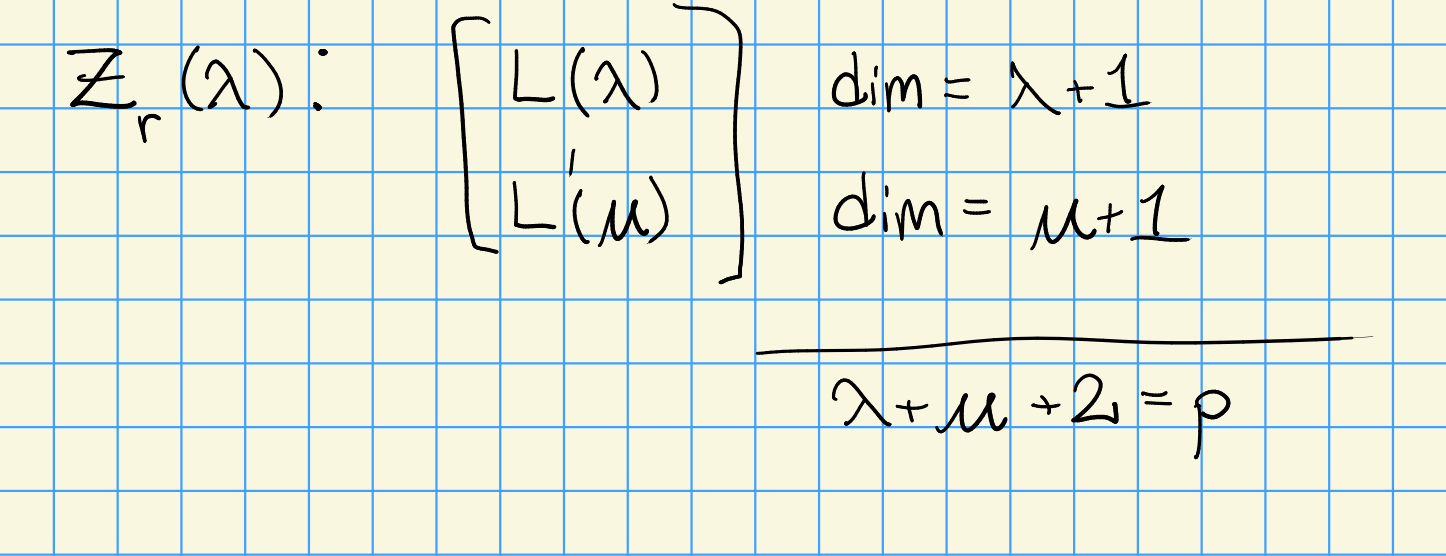 Z_r(λ): [ L(λ) ] dim = λ+1
[ L'(μ) ] dim = μ+1
λ+μ+2=p